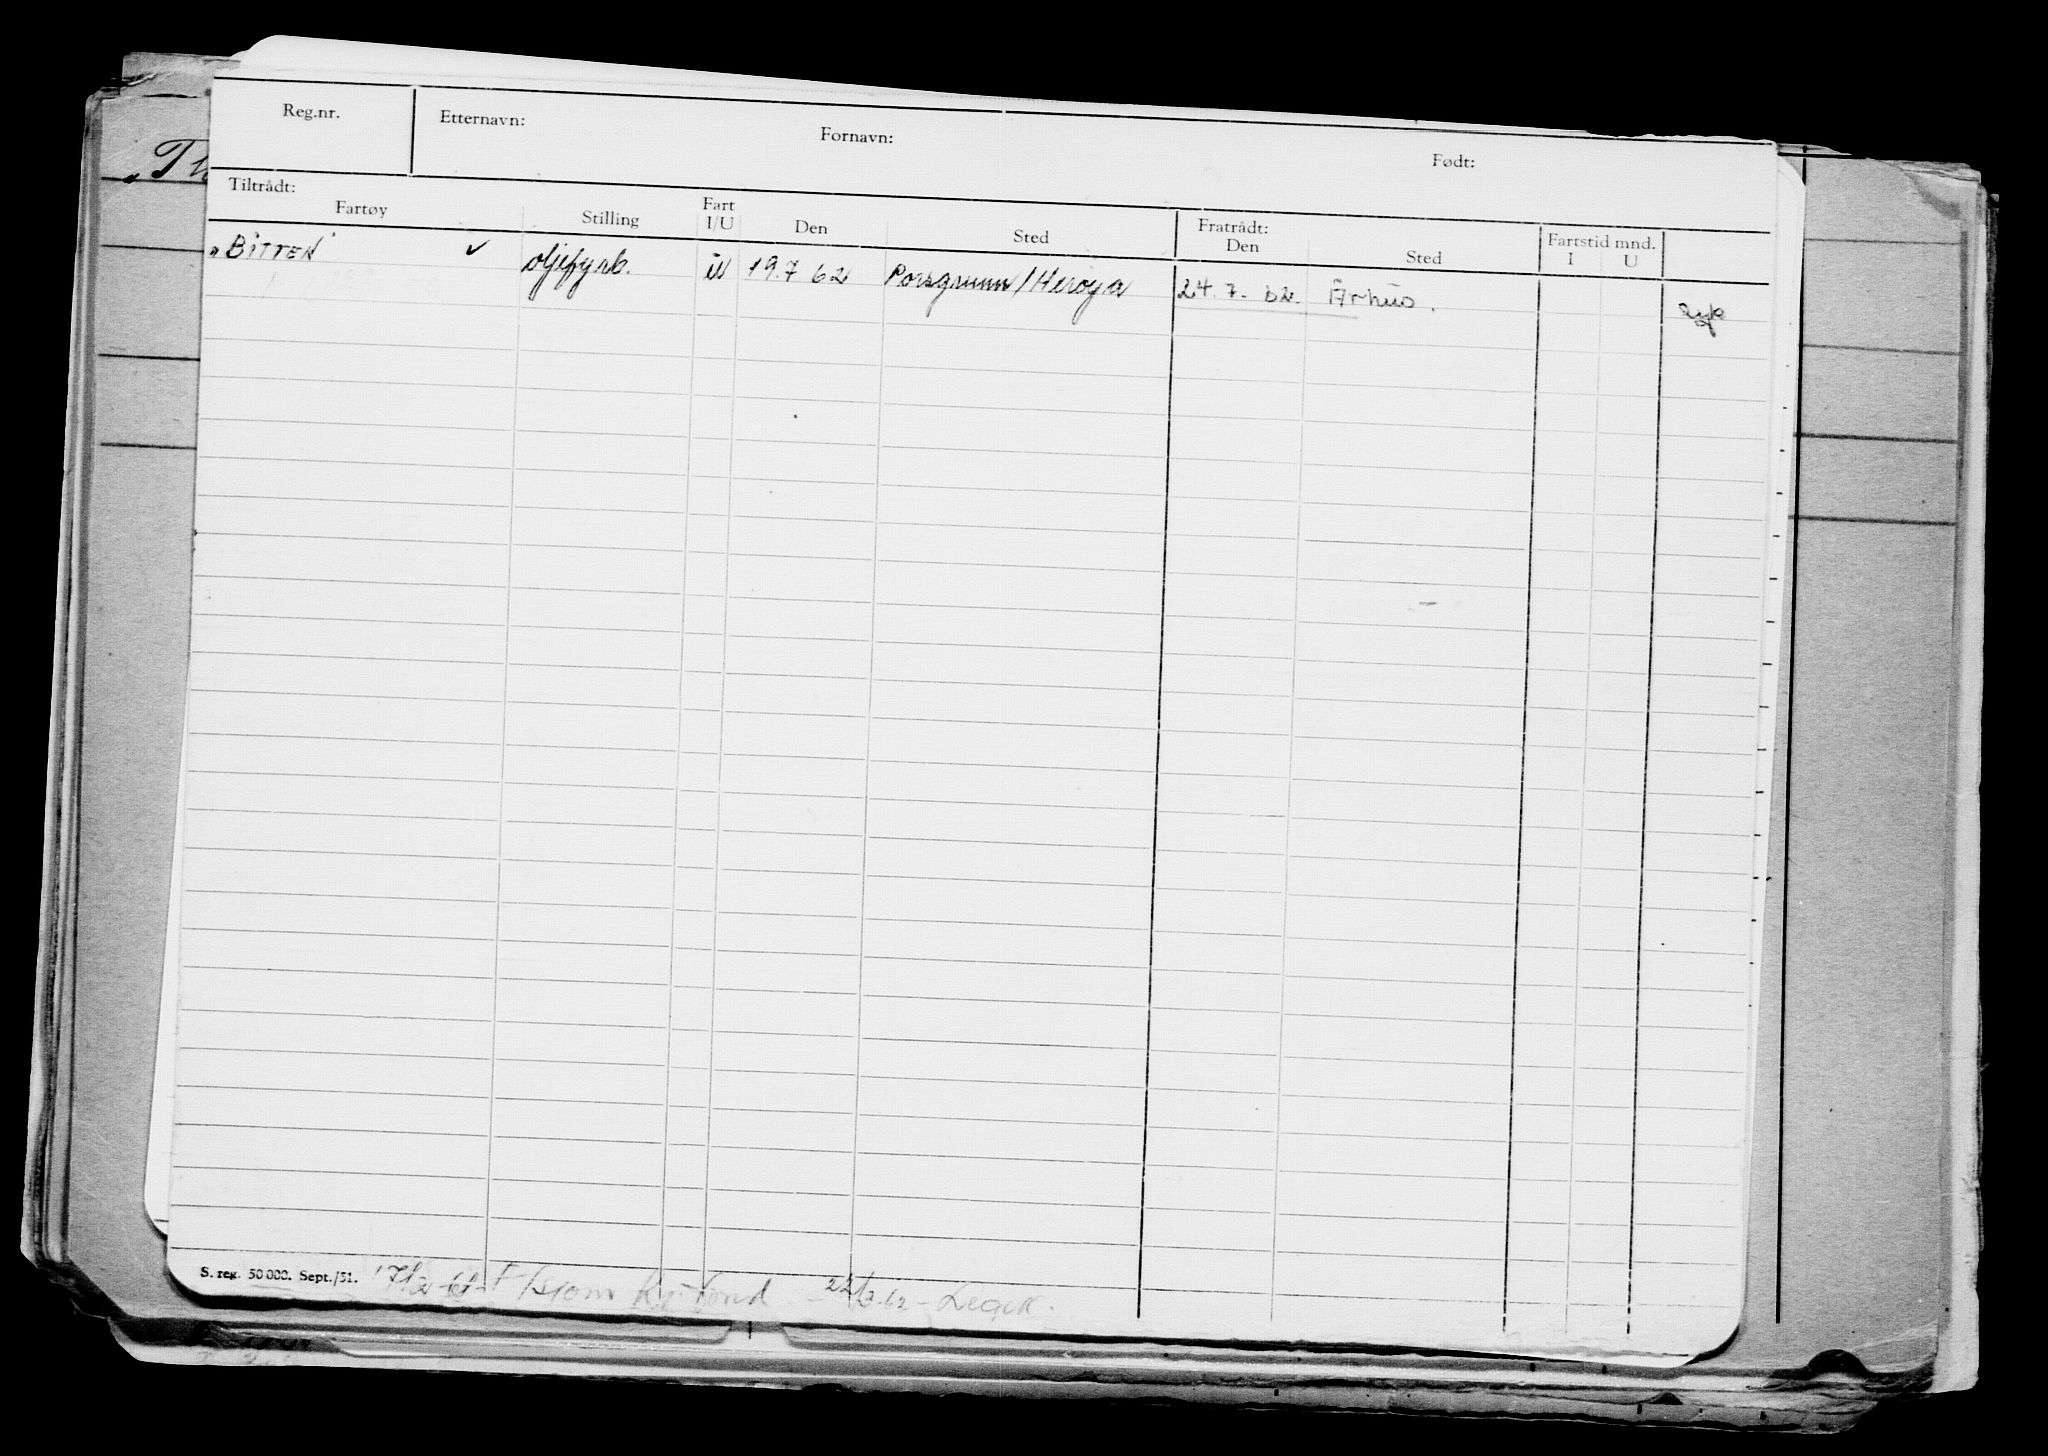 Reg.nr. Etternavn: Fornavn: Født:
Tiltrådt: Fratrådt:
Fartøy Stilling Fart I/U Den Sted Den Sted Fartstid mnd. I U
"BITTEN" ✓ oljefyrb. u 19.7 62 Porsgrunn/Herøya 24.7. 62. Århus.
S. reg. 50 000. Sept./51. 22/3-62 -